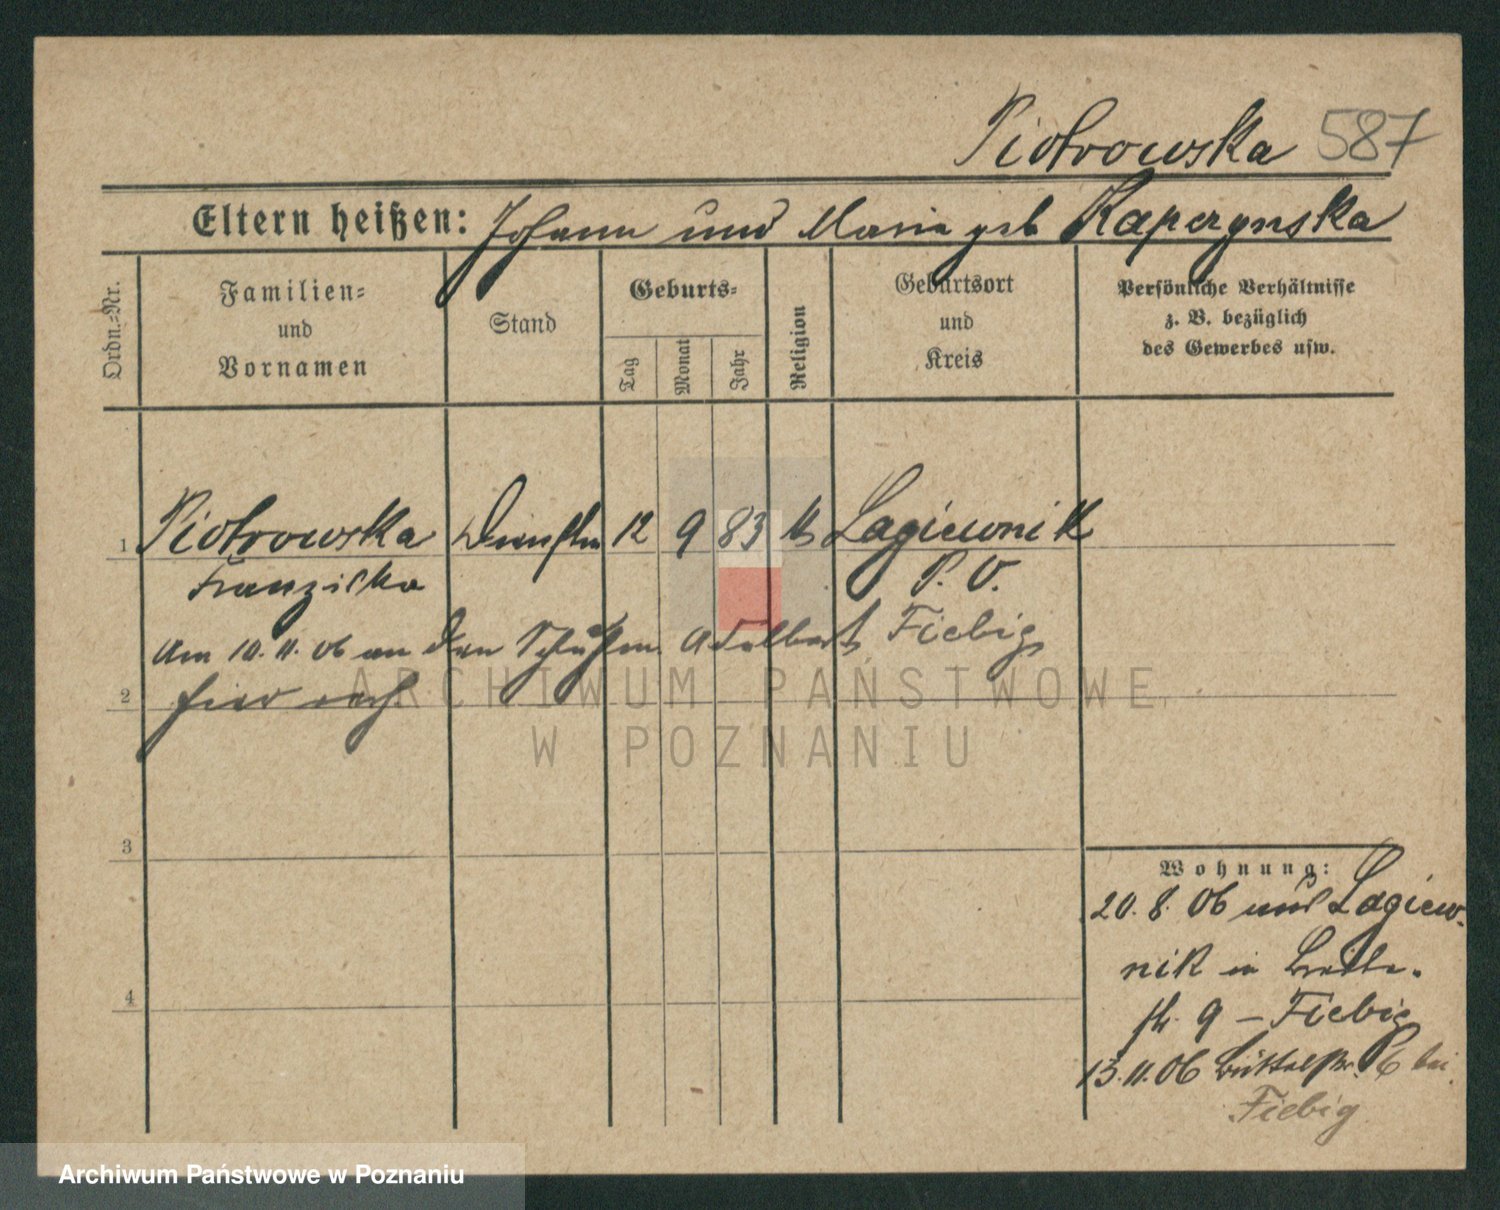 Piotrowska 587
Eltern heißen: Johann und Maria geb Kaperynska
Ordn.-Nr.
Familien- und Vornamen
Stand
Geburts-
Tag
Monat
Jahr
Religion
Geburtsort und Kreis
Persönliche Verhältnisse z. B. bezüglich des Gewerbes usw.
1 Piotrowska 12 9 83 Lagiewnik
Franziska P. O.
Am 10.11.06 an den Adalbert Fiebig
2
3
4
Wohnung:
20.8.06 aus Lagiew-
nik in Breite-
str. 9 – Fiebig
13.11.06 bei
Fiebig
ARCHIWUM PAŃSTWOWE
W POZNANIU
Archiwum Państwowe w Poznaniu